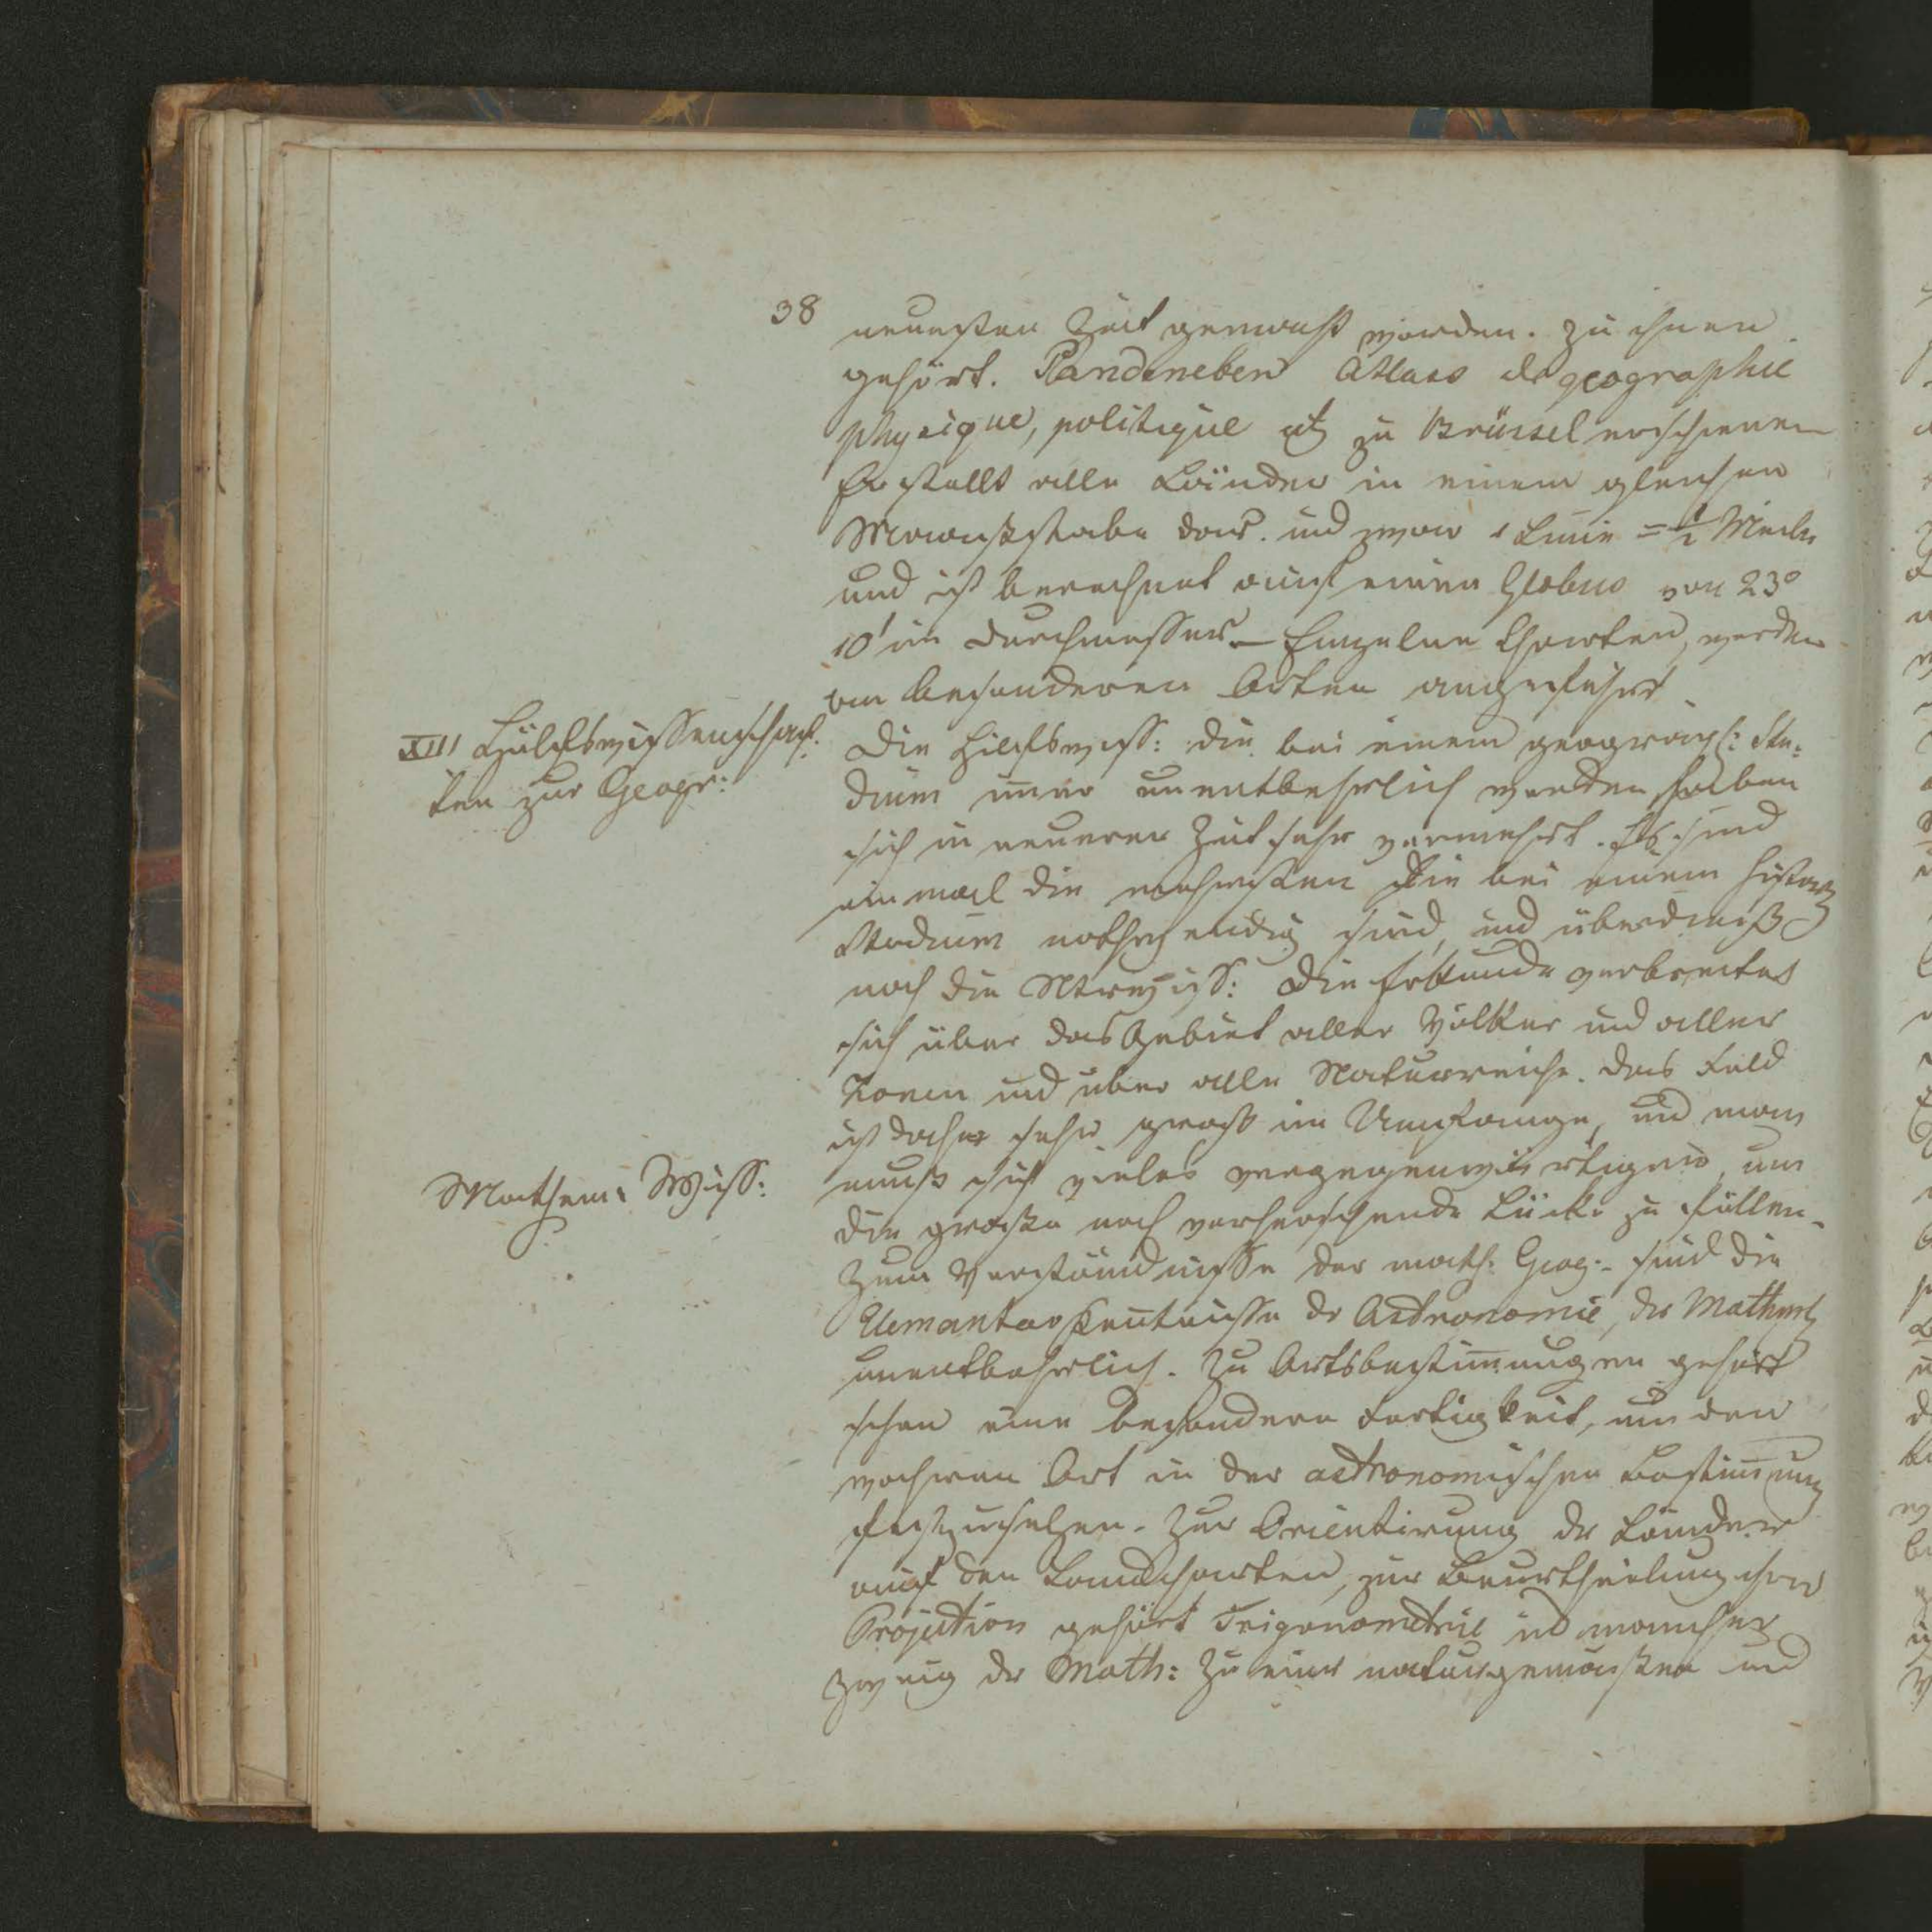 38
neuesten Zeit gemacht worden. zu ihnen
gehört. Vandeneben Atlass de geographie
physique, politique etc zu Brüssel erschienen
Er stellt alle Länder in einem gleichen
Maaßstabe dar. und zwar 1 Linie = ½ Meile
und ist berechnet auf einen Globus von 23°
10' im Durchmesser – Einzelne Charten, werden
an besonderen Orten angeführt
XIII Hülfswissenschaf-
ten zur Geogr:
Die Hilfswiss: die bei einem geograph: Stu-
dium immer unentbehrlich werden haben
sich in neuerer Zeit sehr vermehrt. Es sind
einmal die mehrsten die bei einem histor
Studium nothwendig sind, und überdieß
noch die Ntrwiss: Die Erdkunde verbreitet
sich über das Gebiet aller Völker und aller
Zonen und über alle Naturreiche. Das Feld
ist daher sehr groß im Umfange, und man
Mathem: Wiss:
muß sich vieles vergegenwärtigen, um
die große noch vorherrschende Lücke zu füllen.
Zum Verständnisse der math: Geog: sind die
Elementarkentnisse der Astronomie, der Mathem
unentbehrlich. Zu Ortsbestimungen gehört
schon eine besondere Fertigkeit, um den
wahren Ort in der astronomischen Bestimung
festzusetzen. Zur Orientirung der Länder
auf den Landcharten, zur Beurtheilung ihrer
Projection gehört Trigonometrie und mancher
Zweig der Math: Zu einer naturgemäßen und